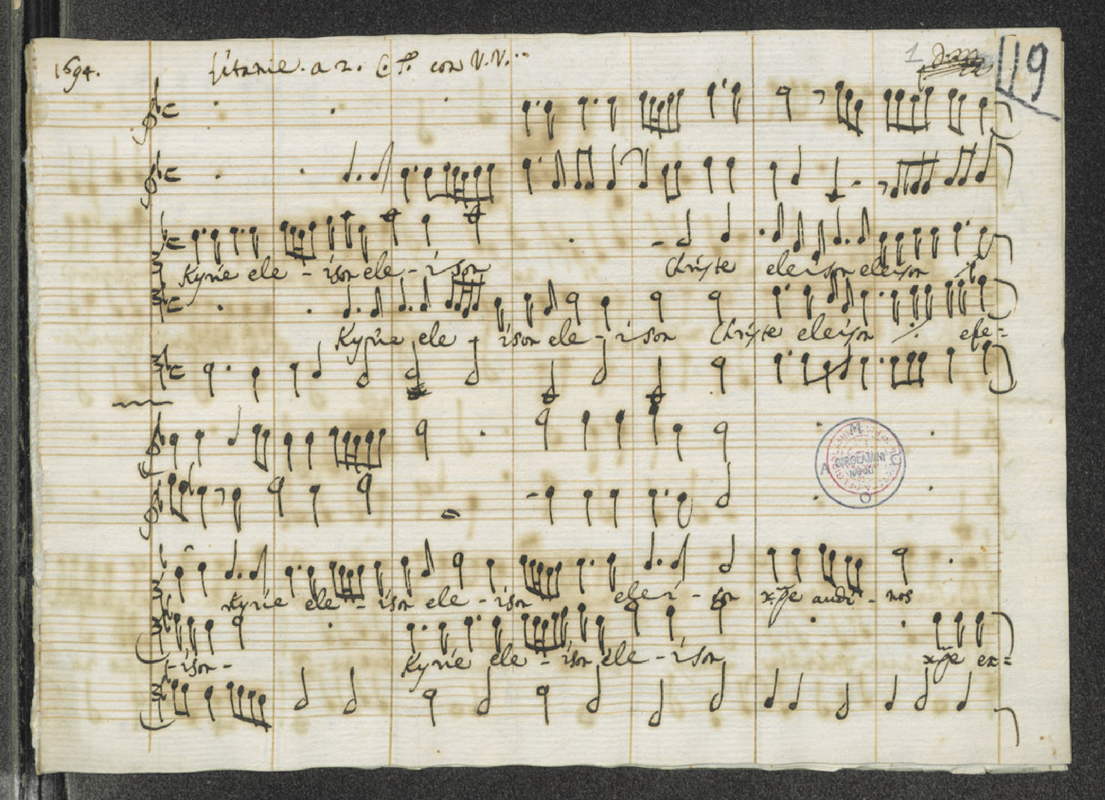 1694. Litanie. a 2. C. S. con V.V.
1
119
Kyrie ele - ison ele - ison Christe eleison eleison
Kyrie ele - ison ele - ison Christe eleison ele=
Kyrie ele - ison ele - ison elei - son xpe audi - nos
-ison- Kyrie ele - ison ele - ison xpe ex=
GIROLAMINI